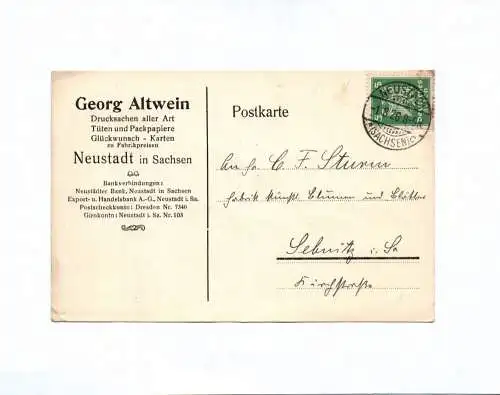 Georg Altwein
Drucksachen aller Art
Tüten und Packpapiere
Glückwunsch - Karten
zu Fabrikpreisen
Neustadt in Sachsen
Bankverbindungen:
Neustädter Bank, Neustadt in Sachsen
Export- u. Handelsbank A.-G., Neustadt i. Sa.
Postscheckkonto: Dresden Nr. 7340
Girokonto: Neustadt i. Sa. Nr. 103
Postkarte
NEUSTADT
(SACHSEN)
An Fa. C. F. Sturm
Fabrik künstl. Blumen und Blätter
Sebnitz i. Sa
Kirchstraße